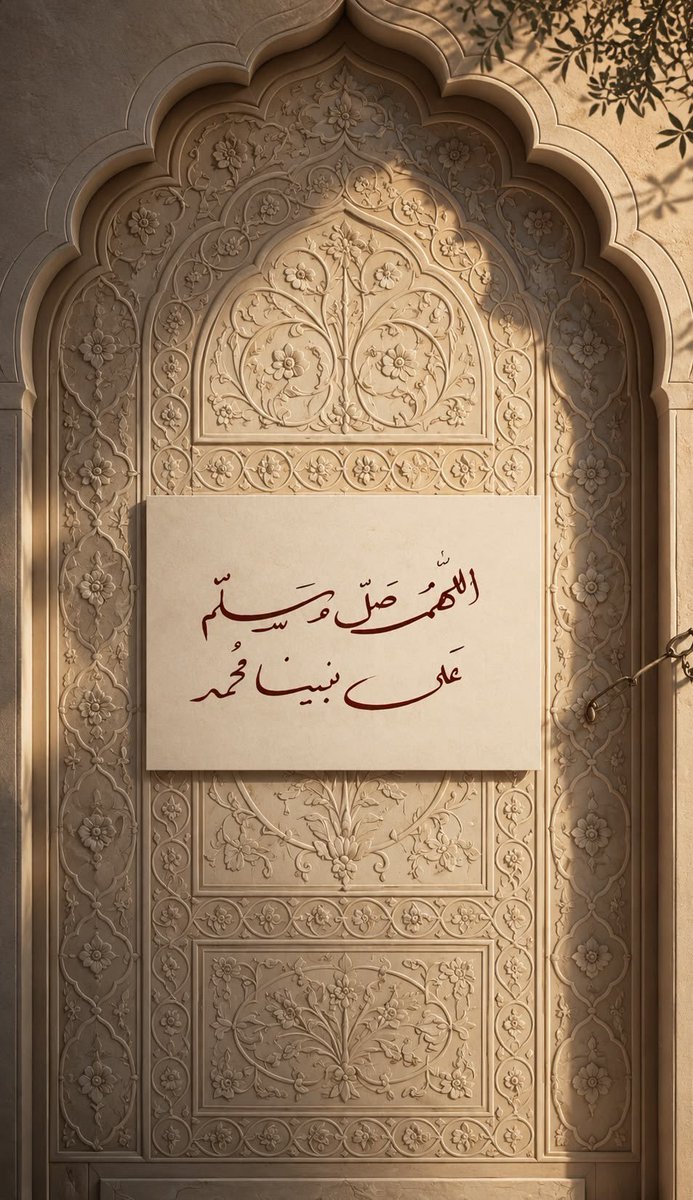 اللّٰهُم صَلّ وَسَلّم
عَلى نبينا مُحمد